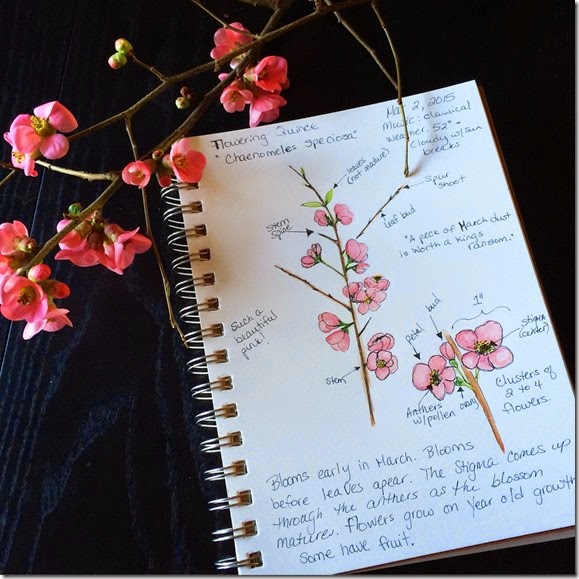 Flowering Quince
"Chaenomeles speciosa"
Mar 2, 2015
Music: classical
Weather: 52° +
Cloudy w/sun
breaks
leaves
(not mature)
Spur
shoot
leaf bud
Stem
spine
"A peck of March dust
is worth a kings
ransom."
Such a
beautiful
pink!
1"
petal
bud
stigma
(center)
Stem
Anthers
w/pollen
ovary
Clusters of
2 to 4
flowers.
Blooms early in March. Blooms
before leaves apear. The Stigma comes up
through the anthers as the blossom
matures. Flowers grow on Year old growth
Some have fruit.